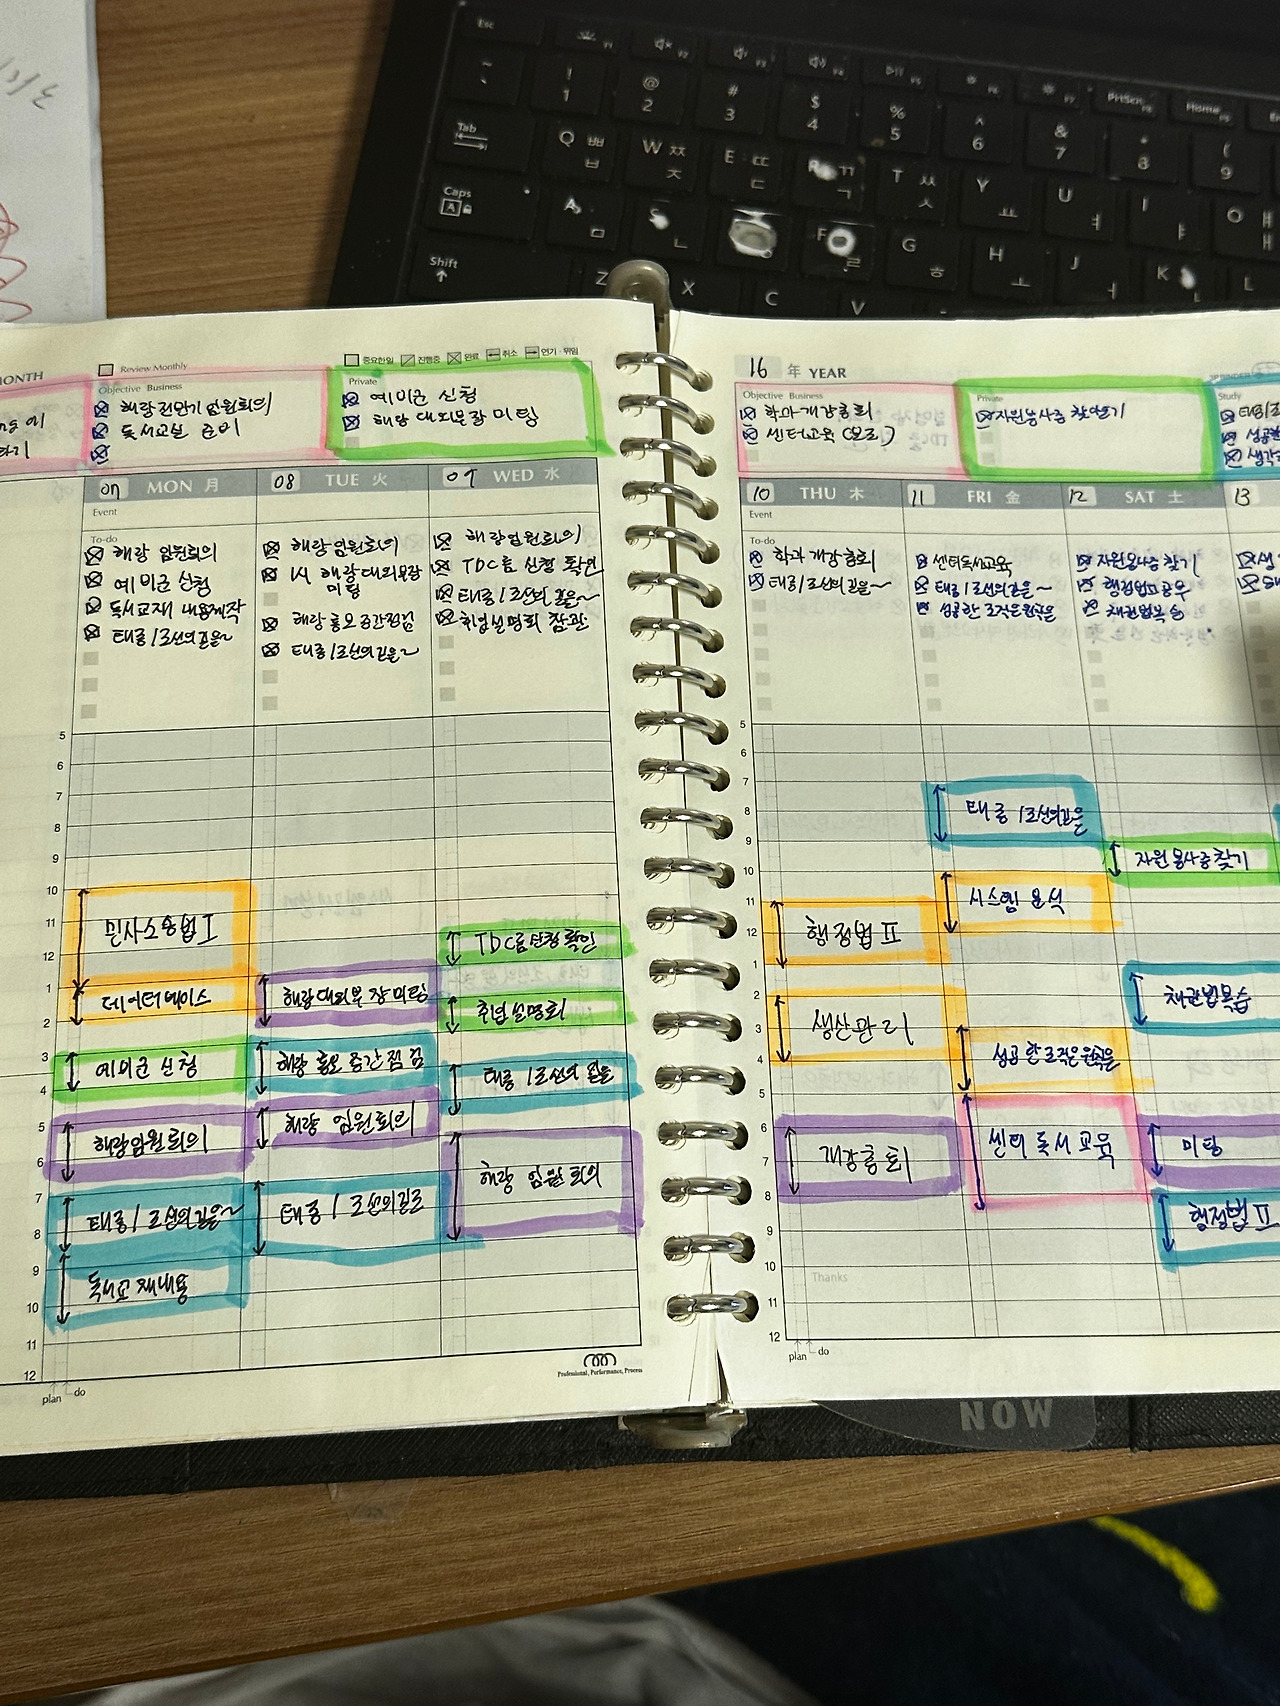 Esc
F1
F2
F3
F4
F5
F6
F7
PrtScn
Home
~ ! @ # $ % ^ & * (
` 1 2 3 4 5 6 7 8 9
Tab Q ㅃ ㅂ W ㅉ ㅈ E ㄸ ㄷ R ㄲ ㄱ T ㅆ ㅅ Y ㅛ U ㅕ I ㅑ O ㅒ ㅐ
Caps A A ㅁ S ㄴ F ㄹ G ㅎ H ㅗ J ㅓ K L
Shift Z X C V
MONTH
Review Monthly
중요한일 진행중 완료 취소 연기·위임
Objective Business
해랑 임원회의
독서교실 준비
Private
예비군 신청
해랑 대외부장 미팅
07 MON 月
08 TUE 火
09 WED 水
Event
To-do
해랑 임원회의
예비군 신청
독서교재 내용제작
태종/조선의길을~
해랑임원회의
1시 해랑대외부장
미팅
해랑 홍보 중간점검
태종/조선의길을~
해랑임원회의
TDC룸 신청 확인
태종/조선의 길을~
취업설명회 참관
5
6
7
8
9
10
11
12
1
2
3
4
5
6
7
8
9
10
11
12
민사소송법 I
데이터베이스
예비군 신청
해랑임원회의
태종/조선의길을~
독서교재내용
해랑대외부장미팅
해랑 홍보 중간점검
해랑 임원회의
태종/조선의길로
TDC룸신청확인
취업설명회
태종/조선의 길을
해랑 임원회의
plan do
Professional, Performance, Process
16 年 YEAR
Objective Business
학과개강총회
센터교육
Private
자원봉사증 찾으기
Study
10 THU 木
11 FRI 金
12 SAT 土
13
Event
To-do
학과 개강총회
태종/조선의길을~
센터독서교육
태종/조선의길을~
성공한 조직은원칙은
자원봉사증 찾기
행정법II공부
채권법복습
5
6
7
8
9
10
11
12
1
2
3
4
5
6
7
8
9
10
11
12
행정법 II
생산관리
개강총회
태종/조선의길을
시스템 분석
센터 독서교육
자원봉사증찾기
채권법복습
미팅
행정법 II
Thanks
plan do
NOW